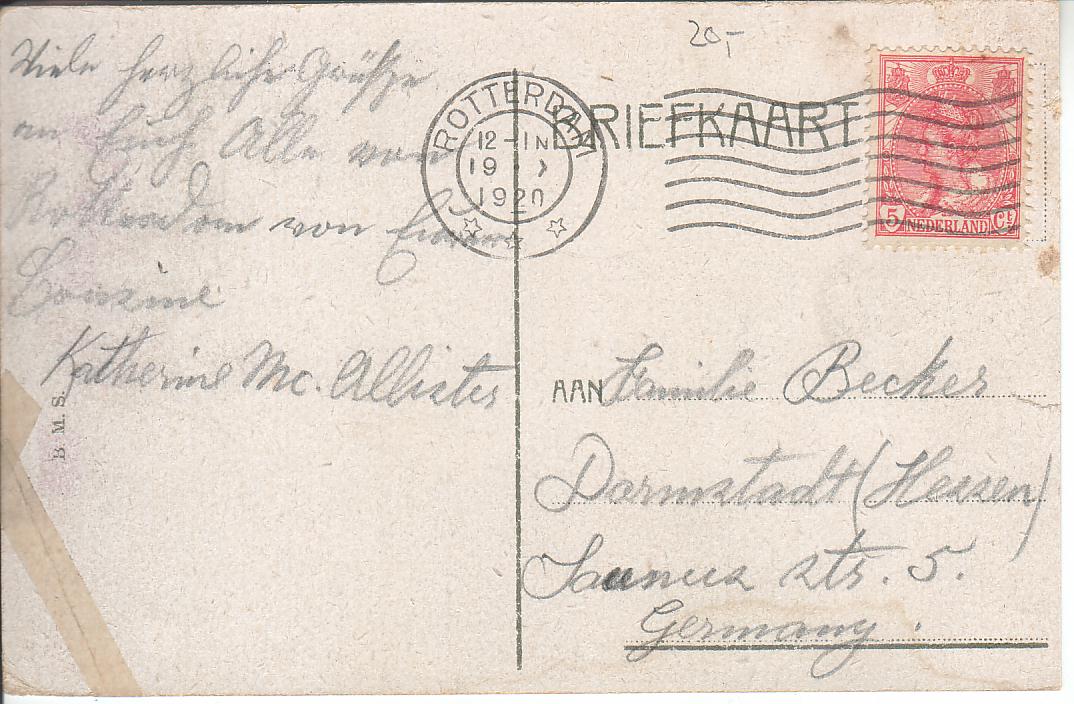 20,-
Viele herzliche Grüße
an Euch Alle von
Rotterdam von Eurer
Cousine
Katherine Mc. Allister
B. M. S.
ROTTERDAM
12-1N
19 X
1920
BRIEFKAART
5 NEDERLAND Ct
AAN Familie Becker
Darmstadt (Hessen)
Taunus str. 5.
Germany.